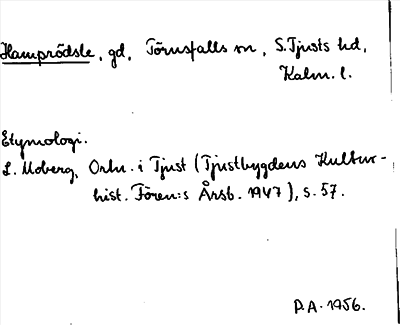 Hamprödsle, gd, Törnsfalls sn, S. Tjusts hd,
Kalm. l.
Etymologi.
L. Moberg, Ortn. i Tjust (Tjustbygdens Kultur-
hist. Fören:s Årsb. 1947), s. 57.
P.A. 1956.